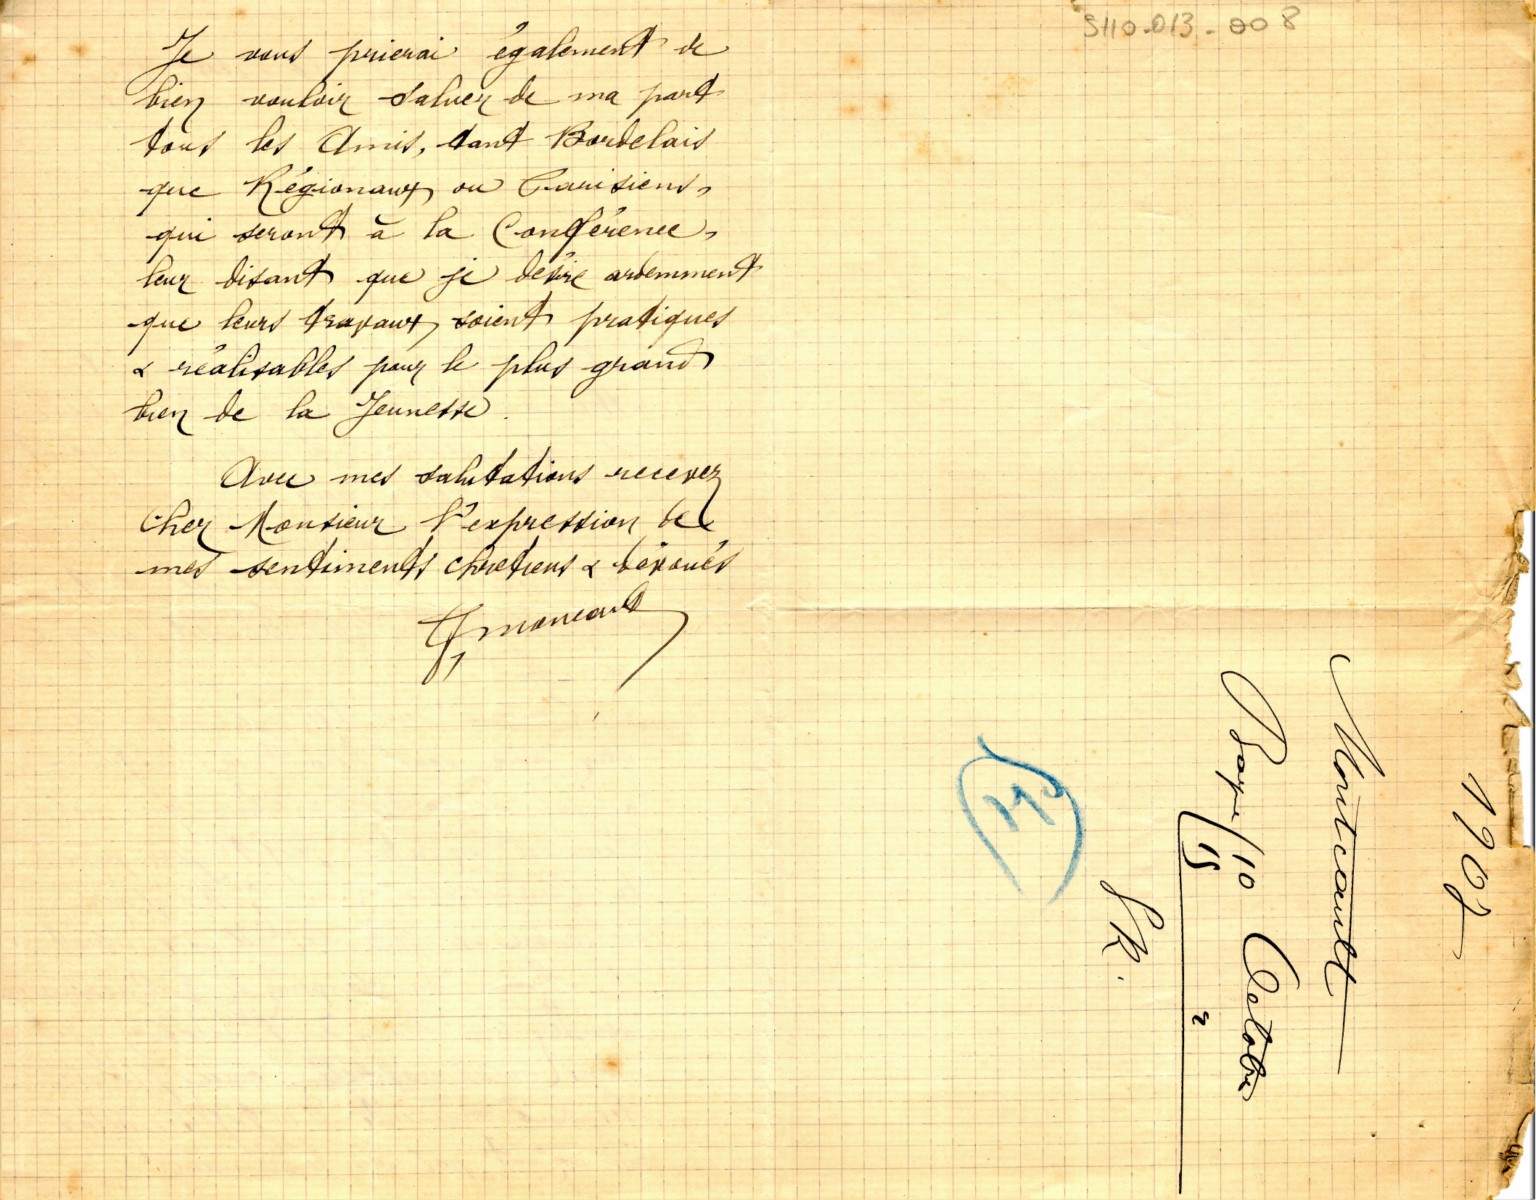 Je vous prierai également de
bien vouloir saluer de ma part
tous les Amis, tant Bordelais
que Régionaux, ou Parisiens,
qui seront à la Conférence,
leur disant que je désire ardemment
que leurs travaux, soient pratiques
& réalisables pour le plus grand
bien de la Jeunesse.
Avec mes salutations recevez
Cher Monsieur l'expression de
mes sentiments chrétiens & dévoués
S110-013-008
190
Montcault
10 Octobre
15
2
S R.